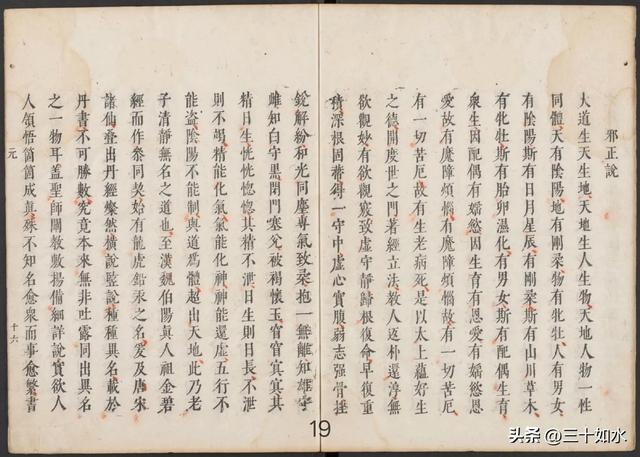 邪正說
大道生天生地天地生人生物天地人物一性
同體天有陰陽地有剛柔物有牝牡人有男女
有陰陽斯有日月星辰有剛柔斯有山川草木
有牝牡斯有胎卵濕化有男女斯有配偶生育
衆生因配偶有婬慾因生育有恩愛有婬慾恩
愛故有魔障煩惱有魔障煩惱故有一切苦厄
有一切苦厄故有生老病死是以太上蘊好生
之德開度世之門著經立法教人返朴還淳無
欲觀妙有欲觀竅致虛守靜歸根復命早復重
積深根固蔕得一守中虛心實腹弱志強骨挫
銳解紛和光同塵專氣致柔抱一無離知雄守
雌知白守黑閉門塞兌被褐懷玉窅窅冥冥其
精日生恍恍惚惚其精不泄日生則日長不泄
則不竭精能化氣氣能化神神能還虛五行不
能盜陰陽不能制與道爲體超出天地此乃老
子清靜無名之道也至漢魏伯陽眞人祖金碧
經而作叅同契始有龍虎鉛汞之名爰及唐宋
諸仙叠出丹經燦然橫說竪說種種異名載於
丹書不可勝數究竟本來無非吐露同出異名
之一物耳蓋聖師闡教敷揚備細詳說實欲人
人領悟箇箇成眞殊不知名愈衆而事愈繁書
元 十六
19
头条 @三十如水